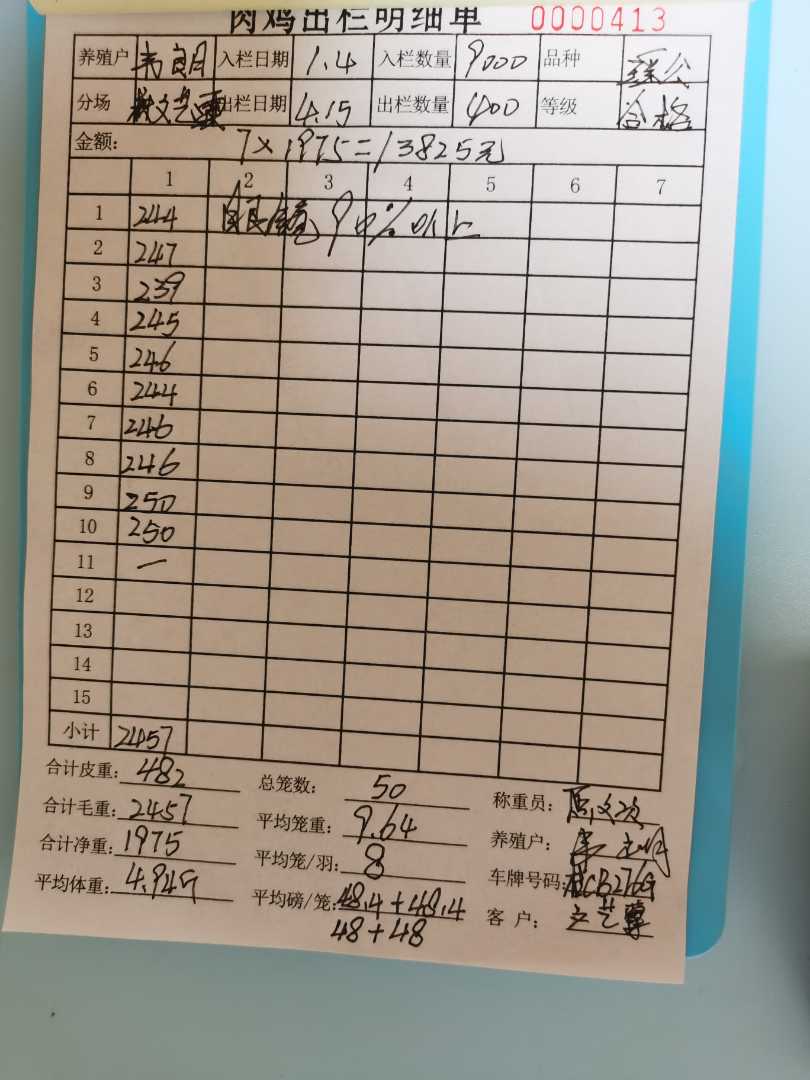 肉鸡出栏明细单 0000413
养殖户 韦良月 入栏日期 1.4 入栏数量 9000 品种
分场 出栏日期 4.15 出栏数量 400 等级 合格
金额: 7×1975=13825元
1 2 3 4 5 6 7
1 244 90%以上
2 247
3 239
4 245
5 246
6 244
7 246
8 246
9 250
10 250
11 一
12
13
14
15
小计 2457
合计皮重: 482 总笼数: 50 称重员:
合计毛重: 2457 平均笼重: 9.64 养殖户:
合计净重: 1975 平均笼/羽: 8 车牌号码:
平均体重: 4.945 平均磅/笼: 48.4+48.4 客户:
48+48